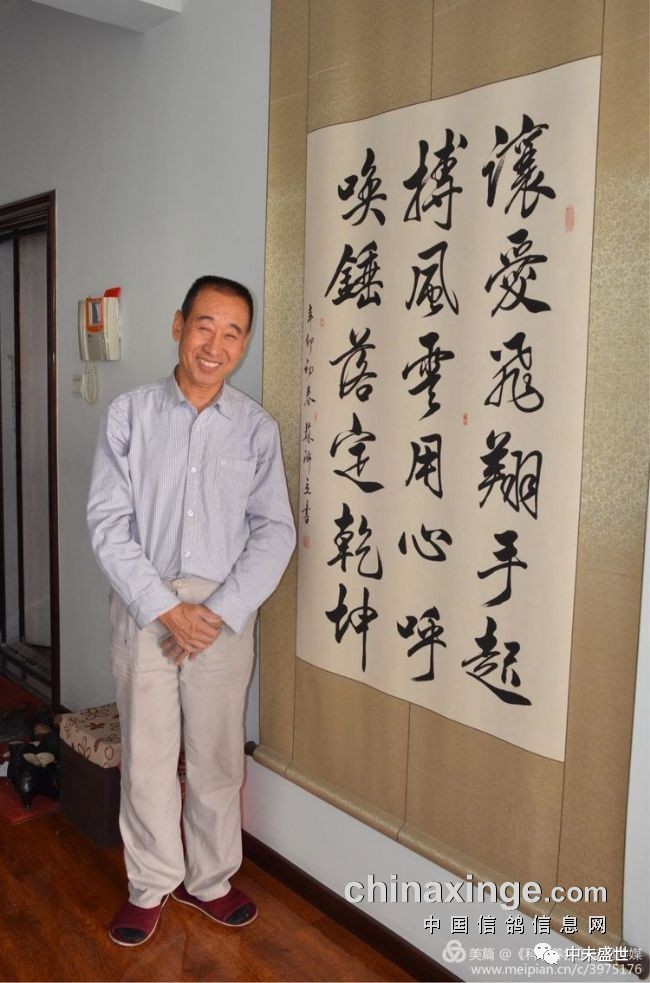 讓愛飛翔手起
搏風雲用心呼
喚錘落定乾坤
辛卯初春蘇立書
chinaxinge.com
中国信鸽信息网
美篇 @《科
中未盛世
媒
www.meipian.cn/c/3975176